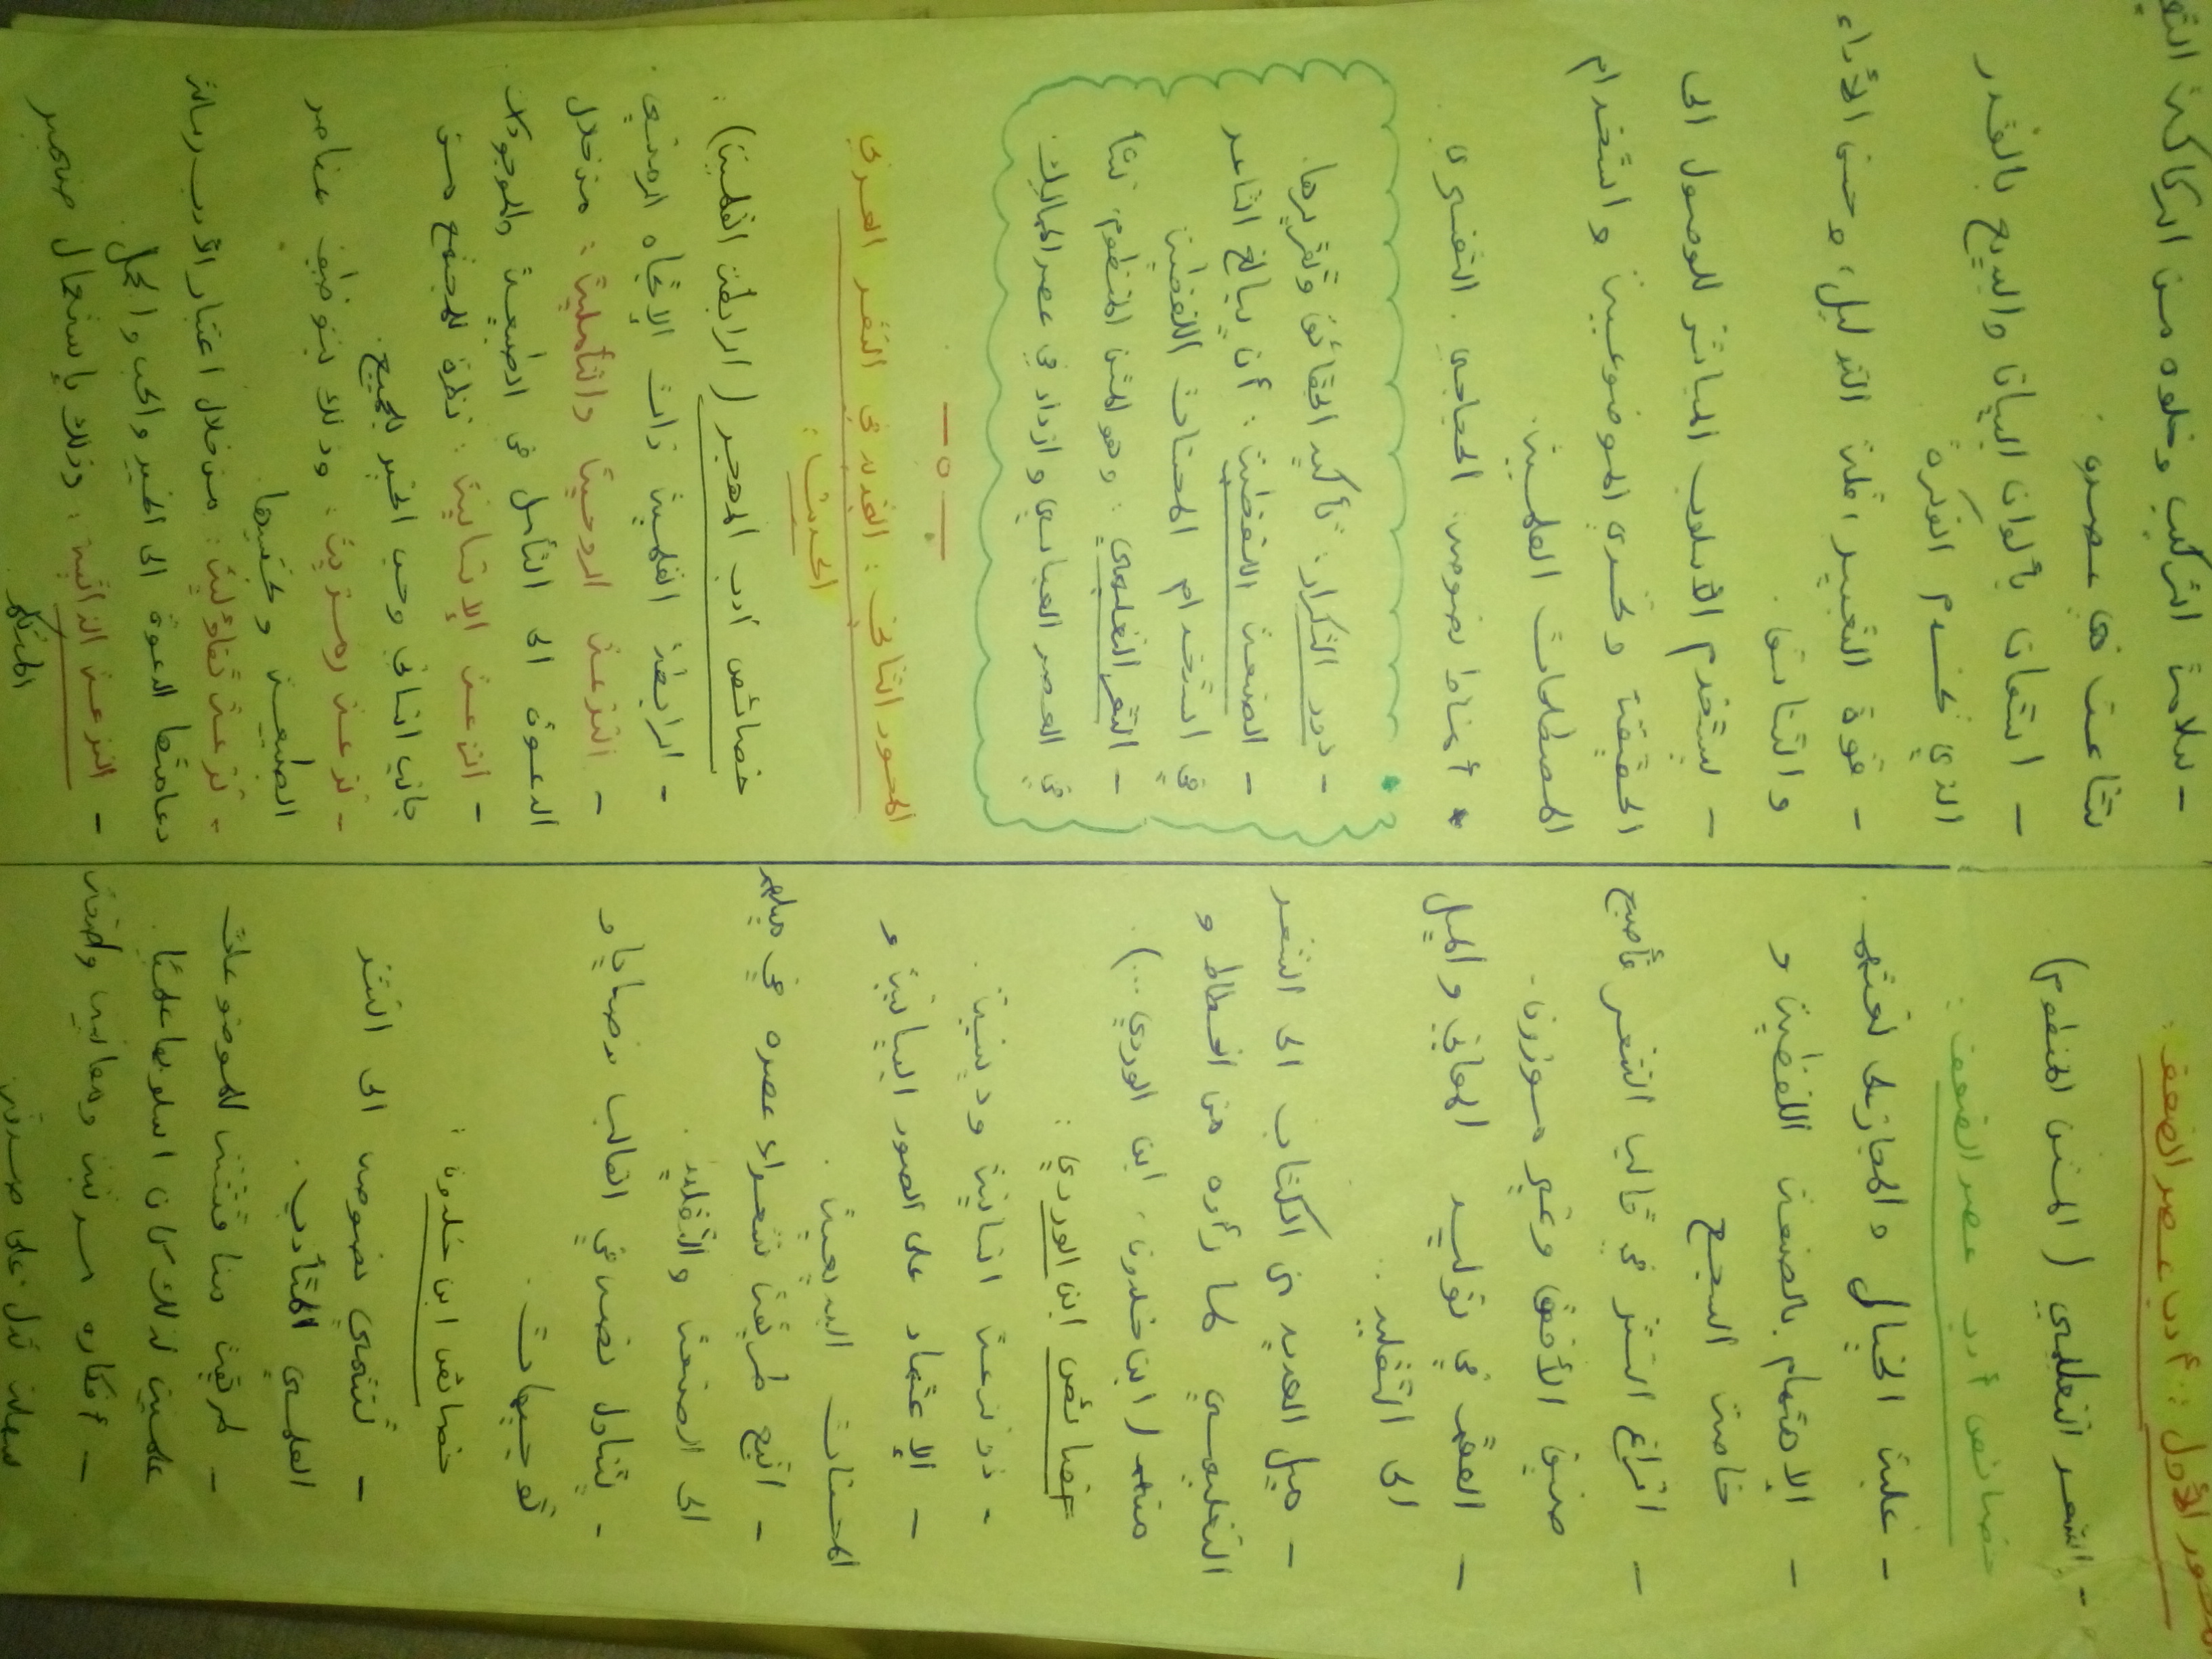 المحور الأول : أدب عصر الضعف :
- الشعر التعليمي ( المتن المنظوم )
خصائص أدب عصر الضعف :
- غلبة الخيال والمجاز على لغتهم .
- الاهتمام بالصنعة اللفظية و
خاصة السجع
- افراغ النثر في قالب الشعر فأصبح
ضيق الأفق وغير موزون .
- العقم في توليد المعاني والميل
الى التقليد .
- ميل العديد من الكتاب الى الشعر
التعليمي لما رأوه من انحطاط و
منهم ( ابن خلدون، ابن الوردي ...) .
خصائص ابن الوردي :
- ذو نزعة انسانية ودينية .
- الإعتماد على الصور البيانية و
المحسنات البديعية .
- اتبع طريقة شعراء عصره في ميلهم
الى الصنعة والتقليد .
- يتناول نصه في الغالب نصايا و
توجيهات .
خصائص ابن خلدون :
- تنتمي نصوصه الى النثر
العلمي المتأدب .
- طريقة مناقشته للموضوعات
علمية لذلك كان اسلوبها علميا .
- أفكاره مرتبة ومعانيه واضحة
سهلة تدل على
- سلامة التركيب وخلوه من الركاكة التي
شاعت في عصره .
- استعان بألوان البيان والبديع بالقدر
الذي يخدم الفكرة
- قوة التعبير، قلة التدليل، وحسن الأداء
والتناسق .
- يستخدم الأسلوب المباشر للوصول الى
الحقيقة وتحري الموضوعية واستخدام
المصطلحات العلمية .
* أنماط نصوصه الحجاجي . التفسيري .
- دور التكرار : تأكيد الحقائق وتقريرها .
- الصنعة اللفظية : أن يبالغ الشاعر
في استخدام المحسنات اللفظية
- الشعر التعليمي : وهو المتن المنظوم، نشأ
في العصر العباسي وازداد في عصر المماليك
- ٥ -
المحور الثاني : التجديد في الشعر العربي
الحديث :
خصائص أدب المهجر ( الرابطة القلمية ) :
- الرابطة القلمية ذات الإتجاه الرمنسي .
- النزعة الروحية والتأملية : من خلال
الدعوة الى التأمل في الطبيعة والموجودات .
- النزعة الإنسانية : نظرة للمجتمع من
جانب انساني وحب الخير للجميع .
- نزعة رمزية : وذلك بتوظيف عناصر
الطبيعة وتجسيدها .
- نزعة تفاؤلية : من خلال اعتبار الأدب رسالة
دعامتها الدعوة الى الخير والحب والجمال .
- النزعة الذاتية : وذلك بإستعمال ضمير
المتكلم